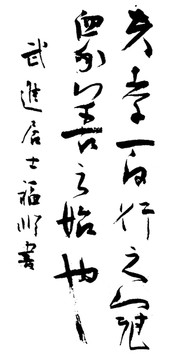 夫孝百行之冠
衆善之始也
武進居士福書